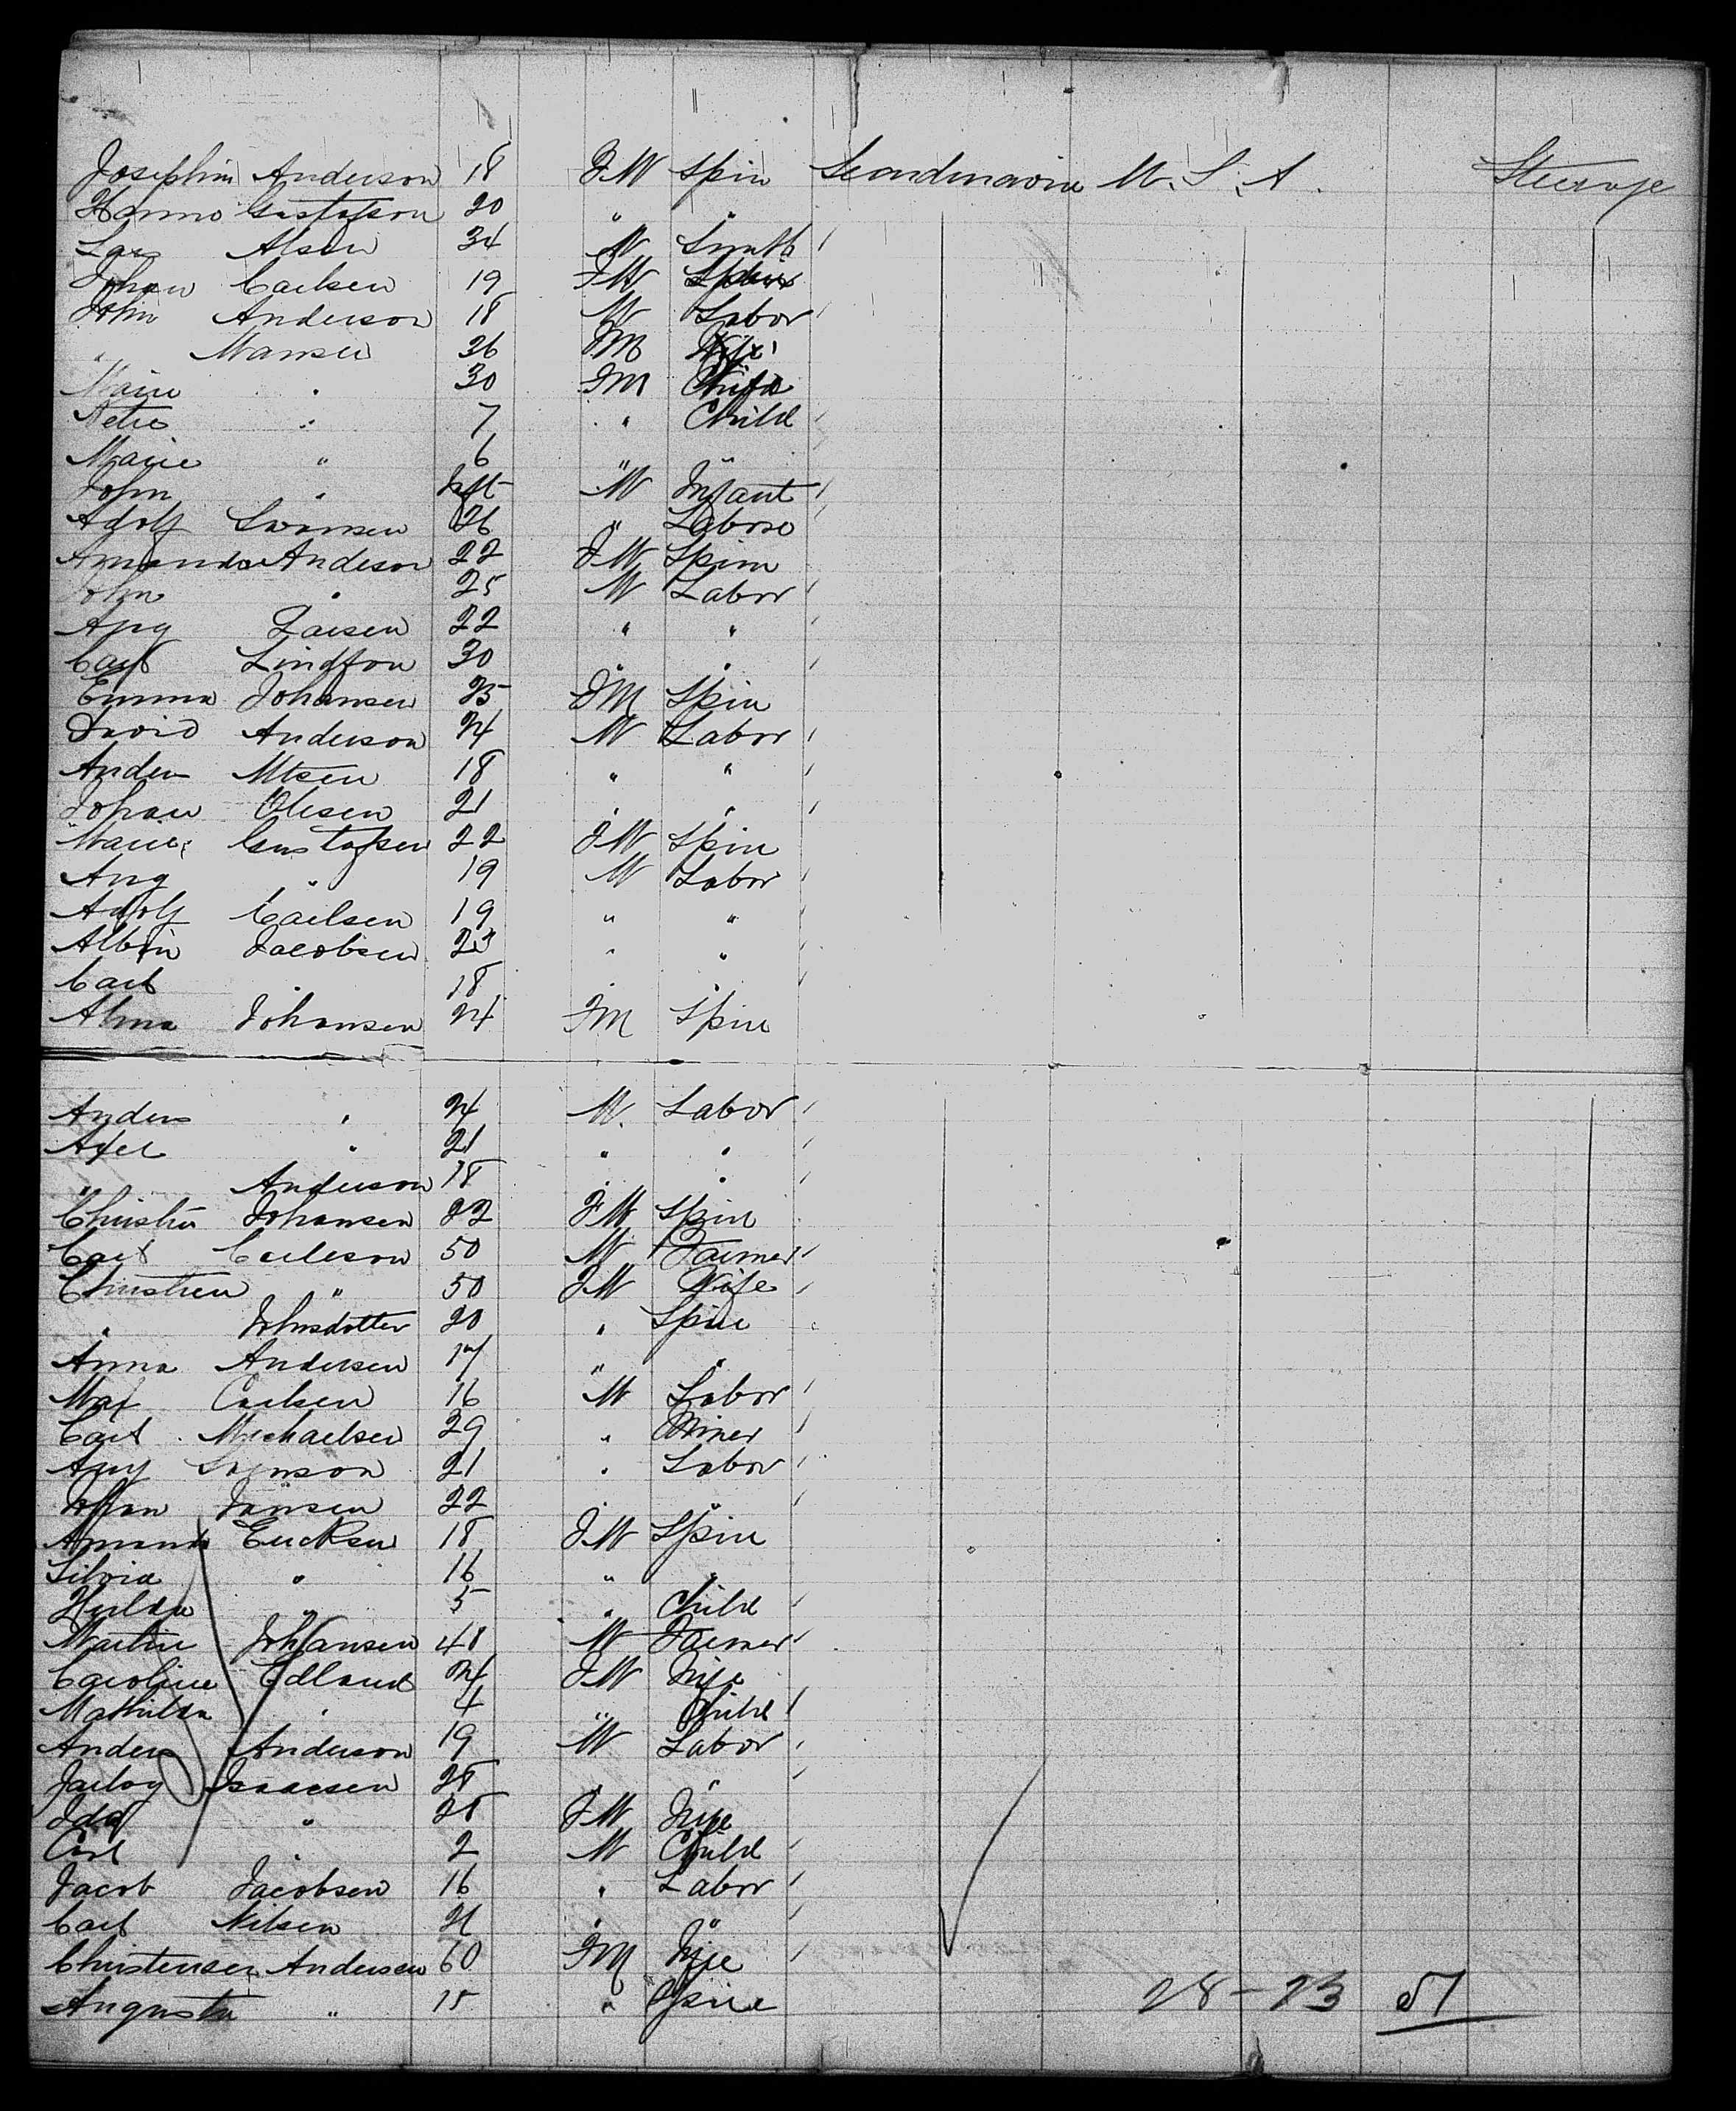 Josephin Anderson 18 FM Spin Scandinavia U.S.A. Steerage
Hanna Gustafson 20 " "
Lars Alsen 34 M Smith
Johan Carlsen 19 FM Spin
John Anderson 18 M Labor
" Hansen 36 FM
Marie " 30 FM
Netie " 7 " Child
Marie " 6 " "
John " Inft M Infant
Adolf Swansen 26 " Labore
Amanda Andeson 22 FM Spinn
John " 25 M Labor
Aug Larsen 22 " "
Carl 30 " "
Emma Johansen 25 FM Spin
David Anderson 24 M Labor
Anders 18 " "
Johan Olesen 21 " "
Marie Gustafsen 22 FM Spin
Aug " 19 M Labor
Adolf Carlsen 19 " "
Albin Jacobsen 23 " "
Carl " 18 "
Alma Johansen 24 FM Spin
Anders " 24 M. Labor
Axel " 21 " "
" Anderson 18 " "
Christin Johansen 22 FM Spin
Carl Carleson 50 M Farmer
Christien " 50 FM Wife
" Johnsdotter 20 " Spin
Anna Andersen 17 " "
Max Carlsen 16 M Labor
Carl Michaelsen 29 " Miner
Aug Swenson 21 " Labor
Johan Jansen 22 " "
Amanda Ericksen 18 FM Spin
Silvia " 16 " "
Hulda " 5 " Child
Martin Johansen 48 M Farmer
Caroline Edlund 24 FM Wife
Mathilda " 4 " Child
Anders Anderson 19 M Labor
Isaacsen 28 " "
Ida " 28 FM Wife
Carl " 2 M Child
Jacob Jacobsen 16 " Labor
Carl Nilsen 21 " "
Christensen Andersen 60 FM Wife
Augusta " 15 " Spin
28-23 51